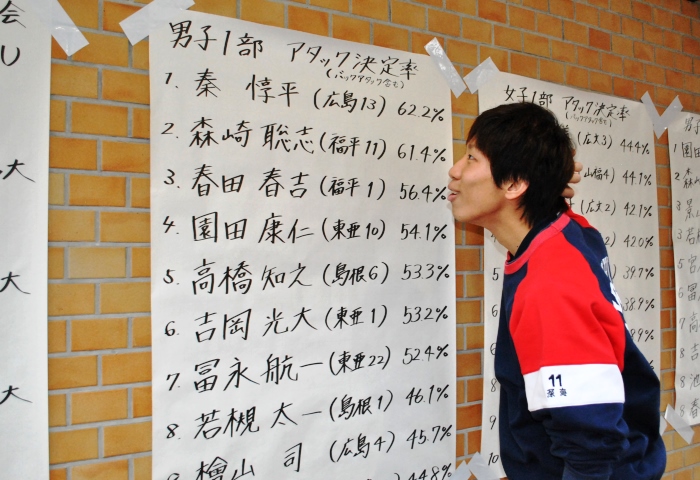 会
U
大
大
大
男子1部 アタック決定率
(バックアタック含む)
1. 秦 惇平 (広島13) 62.2%
2. 森崎 聡志 (福平11) 61.4%
3. 春田 春吉 (福平1) 56.4%
4. 園田 康仁 (東亜10) 54.1%
5. 高橋 知之 (島根6) 53.3%
6. 吉岡 光大 (東亜1) 53.2%
7. 冨永 航一 (東亜22) 52.4%
8. 若槻 太一 (島根1) 46.1%
8. 檜山 司 (広島4) 45.7%
44.8%
女子1部 アタック決定率
(バックアタック含む)
(広大3) 44.4%
山福4) 44.1%
(広大2) 42.1%
2) 42.0%
39.7%
38.9%
10
男子
1 園田
2 森
11